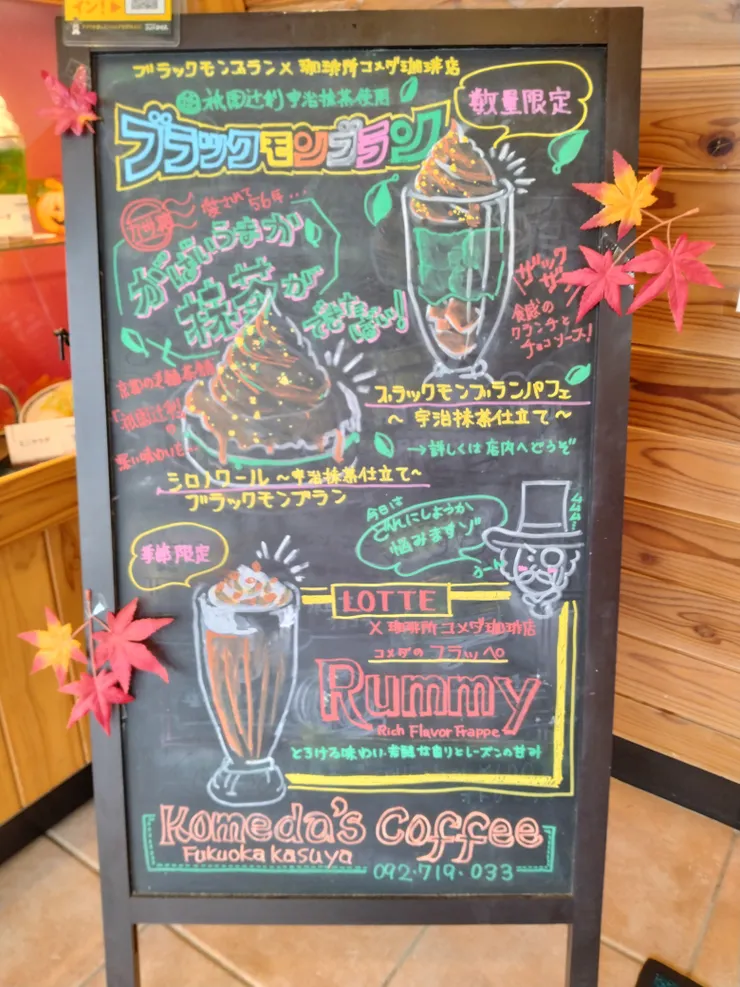 イン!
ブラックモンブラン×珈琲所コメダ珈琲店
祇園辻利宇治抹茶使用
数量限定
ブラックモンブラン
愛されて56年...
がばいうまか
抹茶が
できたばい!
ザックザク
食感の
クランチと
チョコソース!
「祇園辻利」
の
深い味わいを
ブラックモンブランパフェ
〜宇治抹茶仕立て〜
→詳しくは店内へどうぞ
シロノワール〜宇治抹茶仕立て〜
ブラックモンブラン
今日は
どれにしようか
悩みますゾ
うーん
季節限定
LOTTE
×珈琲所コメダ珈琲店
コメダのフラッペ
Rummy
Rich Flavor Frappe
とろける味わい芳醇な香りとレーズンの甘み
Komeda's Coffee
Fukuoka kasuya
092-719-033